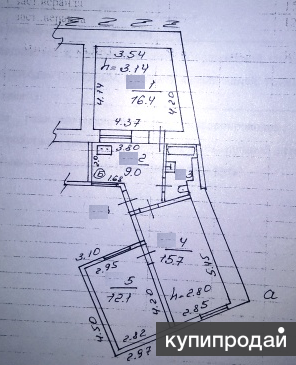 3.54
h=3.14
1
16.4
4.14
4.20
4.37
3.80
2
9.0
1.68
3
3.10
2.95
4
15.7
5.45
5
12.1
4.20
h=2.80
2.85
а
4.50
2.82
2.97
купипродай